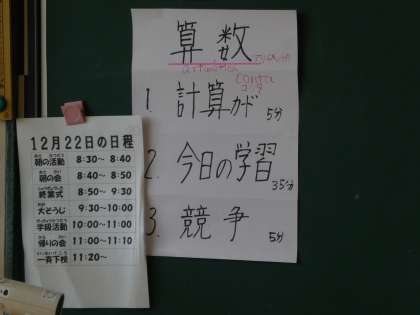 算数
aritmética
conta
コンタ
1. 計算カード
5分
2. 今日の学習
35分
3. 競争
5分
12月22日の日程
朝の活動 8:30～8:40
朝の会 8:40～8:50
終業式 8:50～9:30
大そうじ 9:30～10:00
学級活動 10:00～11:00
帰りの会 11:00～11:10
一斉下校 11:20～